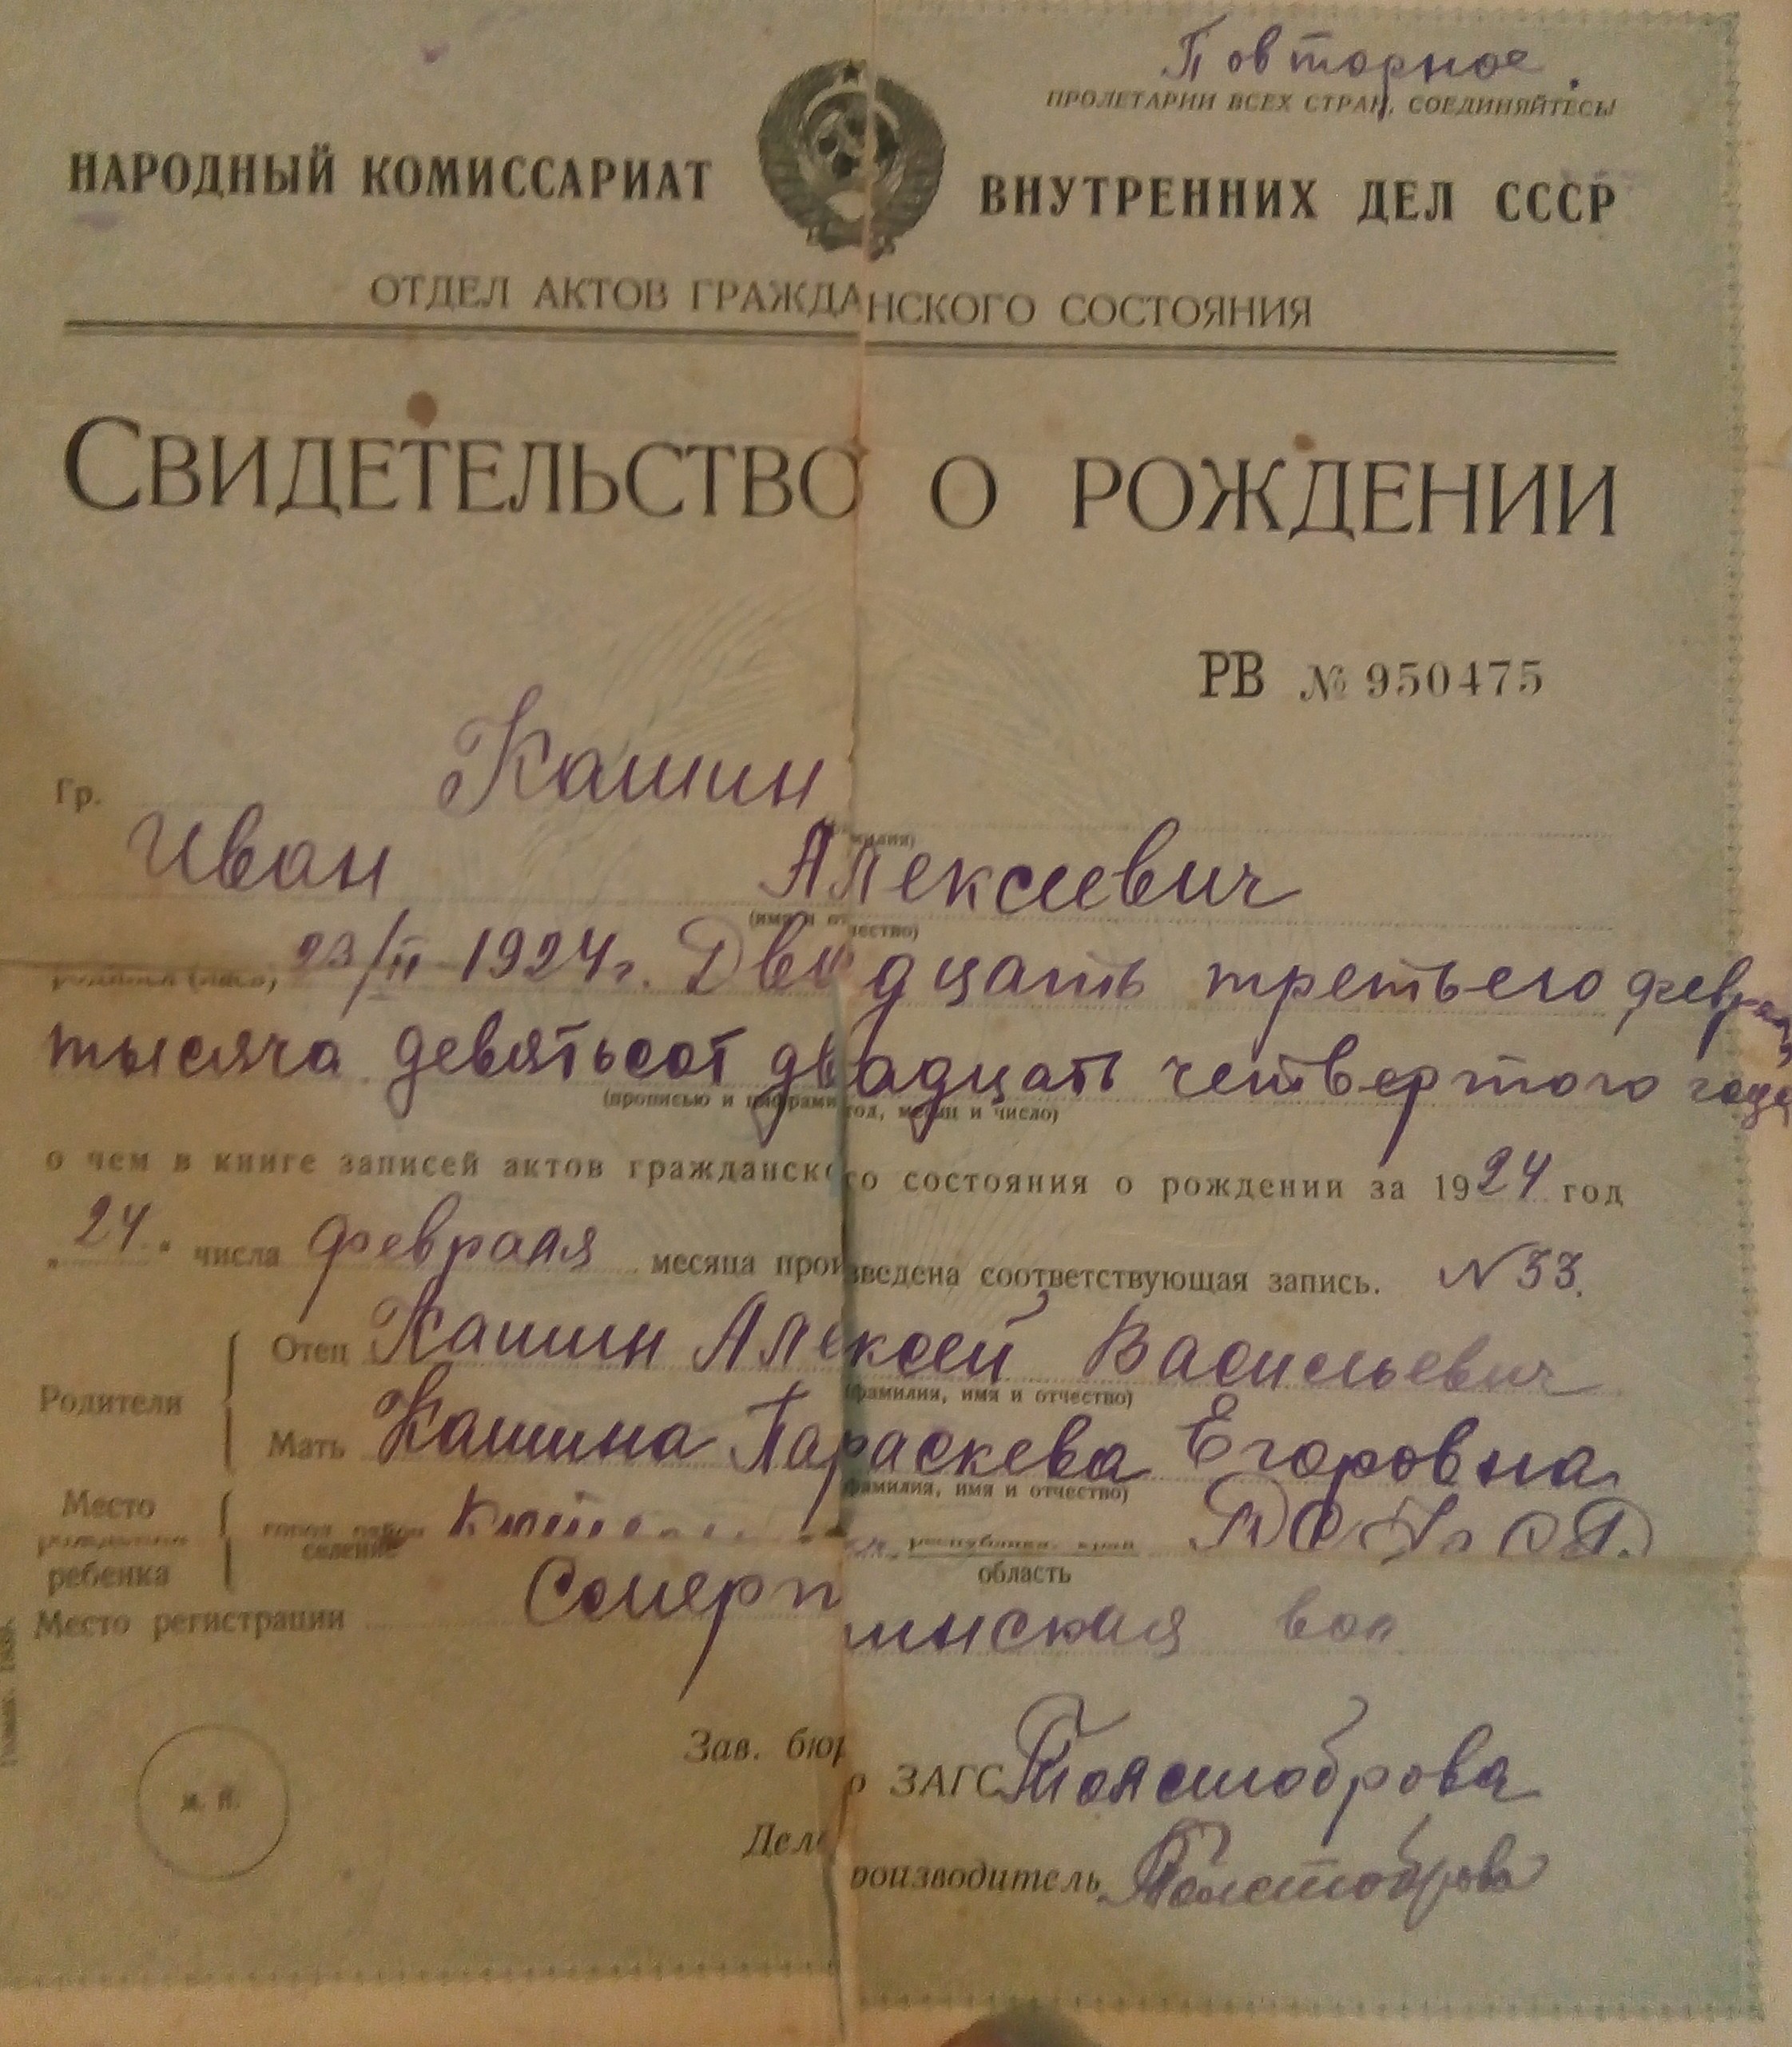 Повторное
ПРОЛЕТАРИИ ВСЕХ СТРАН, СОЕДИНЯЙТЕСЬ!
НАРОДНЫЙ КОМИССАРИАТ ВНУТРЕННИХ ДЕЛ СССР
ОТДЕЛ АКТОВ ГРАЖДАНСКОГО СОСТОЯНИЯ
СВИДЕТЕЛЬСТВО О РОЖДЕНИИ
РВ № 950475
Гр. Кашин
(фамилия)
Иван Алексеевич
(имя и отчество)
23/II-1924г. Двадцать третьего февраля
тысяча девятьсот двадцать четвертого года
(прописью и цифрами год, месяц и число)
о чем в книге записей актов гражданского состояния о рождении за 1924 год
„24" числа февраля месяца произведена соответствующая запись. N 33.
Родители
Отец Кашин Алексей Васильевич
(фамилия, имя и отчество)
Мать Кашина Параскева Егоровна
(фамилия, имя и отчество)
Место рождения ребенка
город, район селение
республика, край область Р.С.Ф.С.Р.
Место регистрации вол
Зав. бюро ЗАГС Толстоброва
Делопроизводитель Толстоброва
м. п.